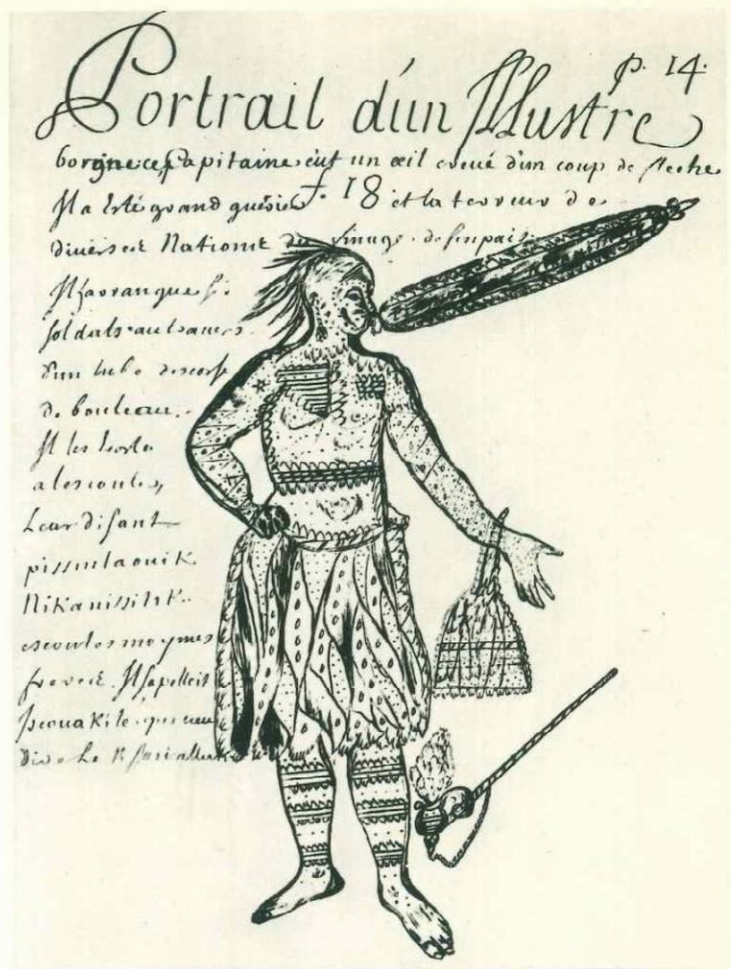 p. 14.
Portrait d'un Illustre
borgne ce Capitaine eut un œil creué d'un coup de fleche
Il a Esté grand guerier f. 18 et la terreur de
diverse Nations du uinage de son pais
Il haranque
soldats au trauers
d'un tube descorse
de bouleau.
Il les
a lescoute,
Leur disant
pissintaouik
Nikanissitik
escoutes mo ymes
frere. Il sapelloit
Iscouakite
dire Le